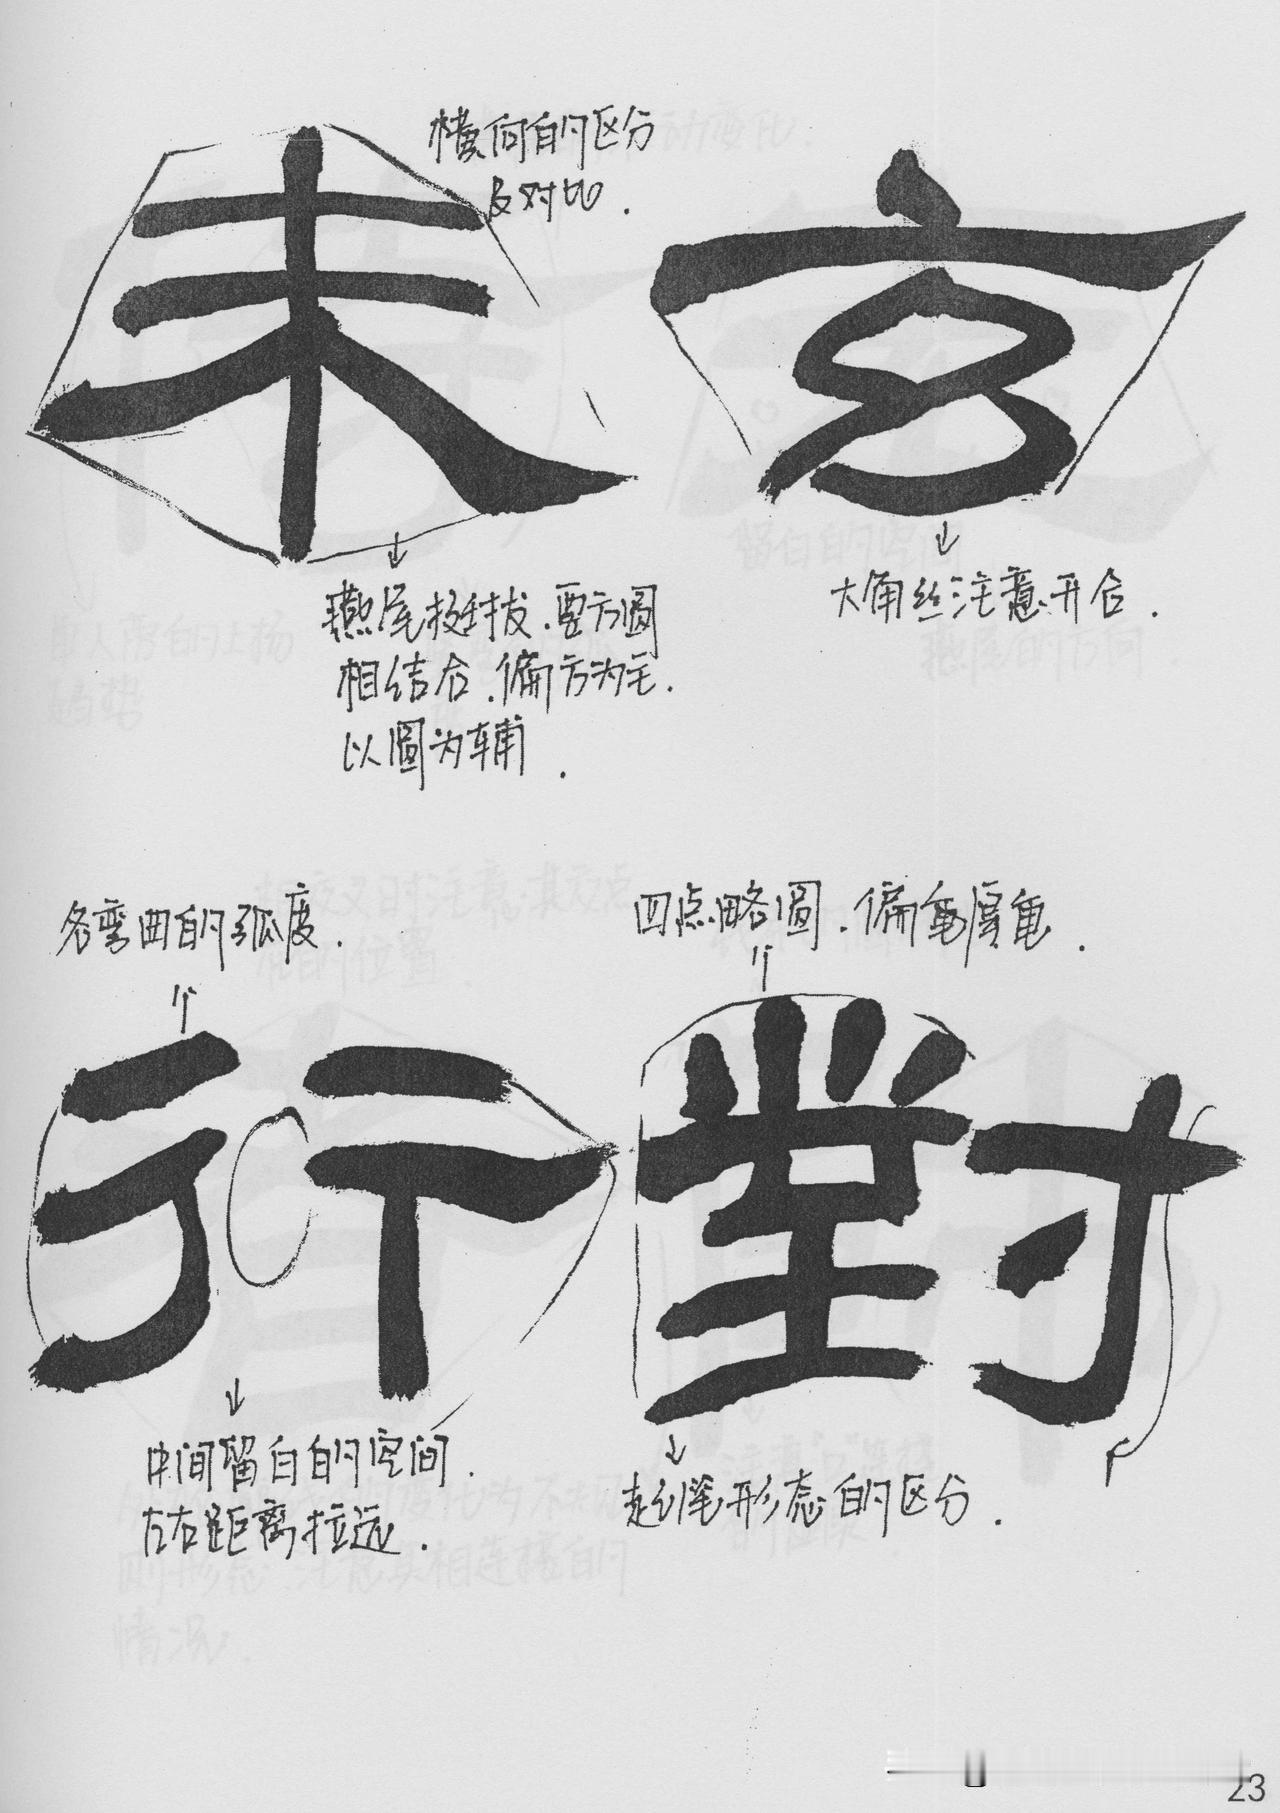 横向的区分
及对比.
未 玄
燕尾挺拔.要方圆
相结合.偏方为主.
以圆为辅.
大角丝注意开合.
各弯曲的弧度.
四点略圆.偏龟厚龟.
行 對
中间留白的空间.
左右距离拉远.
起笔形态的区分.
23